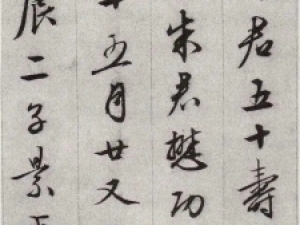 君五十壽
朱君懋功
十五月廿又
辰二子景